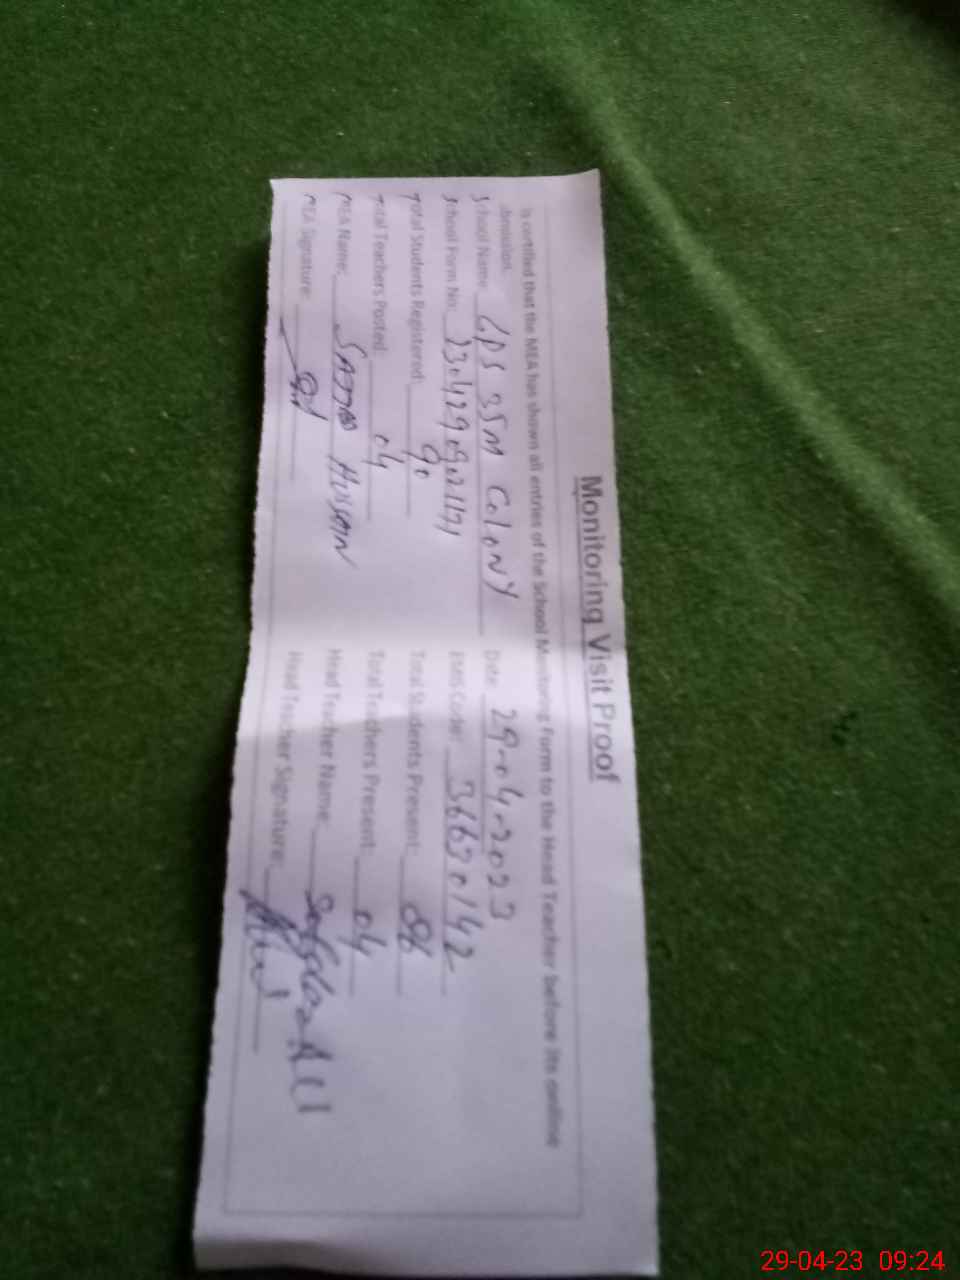 Monitoring Visit Proof
is certified that the MEA has shown all entries of the School Monitoring Form to the Head Teacher before its online
bmission.
School Name: GPS 35M COLONY Date: 29-04-2023
School Form No: EMIS Code:
Total Students Registered: 90 Total Students Present: 86
Total Teachers Posted: 04 Total Teachers Present: 04
MEA Name: SAJJAD HUSSAIN Head Teacher Name: Safdar Ali
MEA Signature: Head Teacher Signature:
29-04-23 09:24